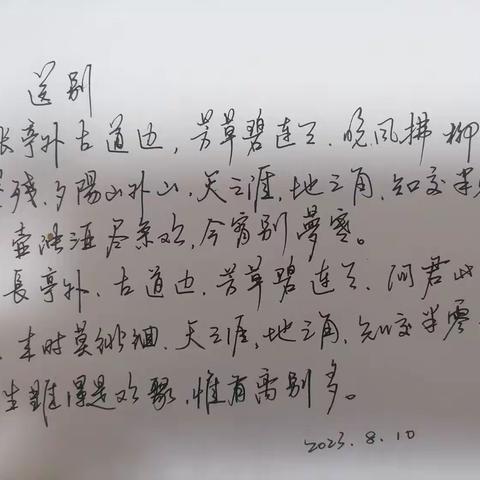 送别
长亭外古道边,芳草碧连天.晚风拂柳
残,夕陽山外山,天之涯,地之角,知交半
壶浊酒尽余欢,今宵别夢寒。
長亭外.古道边.芳草碧连天.问君此
来时莫徘徊.天之涯,地之角,知交半零
生難得是欢聚,惟有离别多。
2023.8.10